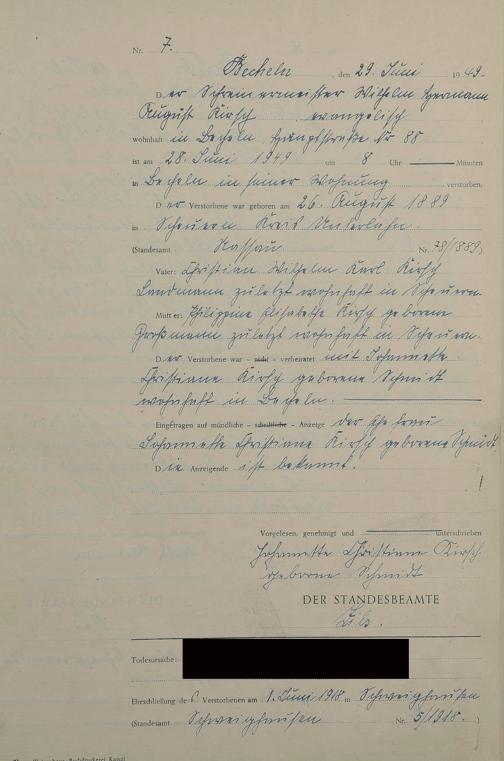 Nr. 7.
Becheln, den 29. Juni 1949.
Der Schreinermeister Wilhelm Hermann
August Kirsch evangelisch
wohnhaft in Becheln, Hauptstraße Nr 88
ist am 28. Juni 1949 um 8 Uhr Minuten
in Becheln in seiner Wohnung verstorben.
Der Verstorbene war geboren am 26. August 1889
in Scheuern Kreis Unterlahn.
(Standesamt Nassau Nr. 79/1889)
Vater: Christian Wilhelm Karl Kirsch
Landmann zuletzt wohnhaft in Scheuern.
Mutter: Philippine Elisabethe Kirsch geborene
Großmann zuletzt wohnhaft in Scheuern.
Der Verstorbene war – nicht – verheiratet mit Johannette
Christiane Kirsch geborene Schmidt
wohnhaft in Becheln.
Eingetragen auf mündliche – schriftliche – Anzeige der Ehefrau
Johannette Christiane Kirsch geborene Schmidt
Die Anzeigende ist bekannt.
Vorgelesen, genehmigt und unterschrieben
Johannette Christiane Kirsch
geborene Schmidt
DER STANDESBEAMTE
Todesursache:
Eheschließung des Verstorbenen am 1. Juni 1918 in Schweighausen
(Standesamt Schweighausen Nr. 5/1918.)